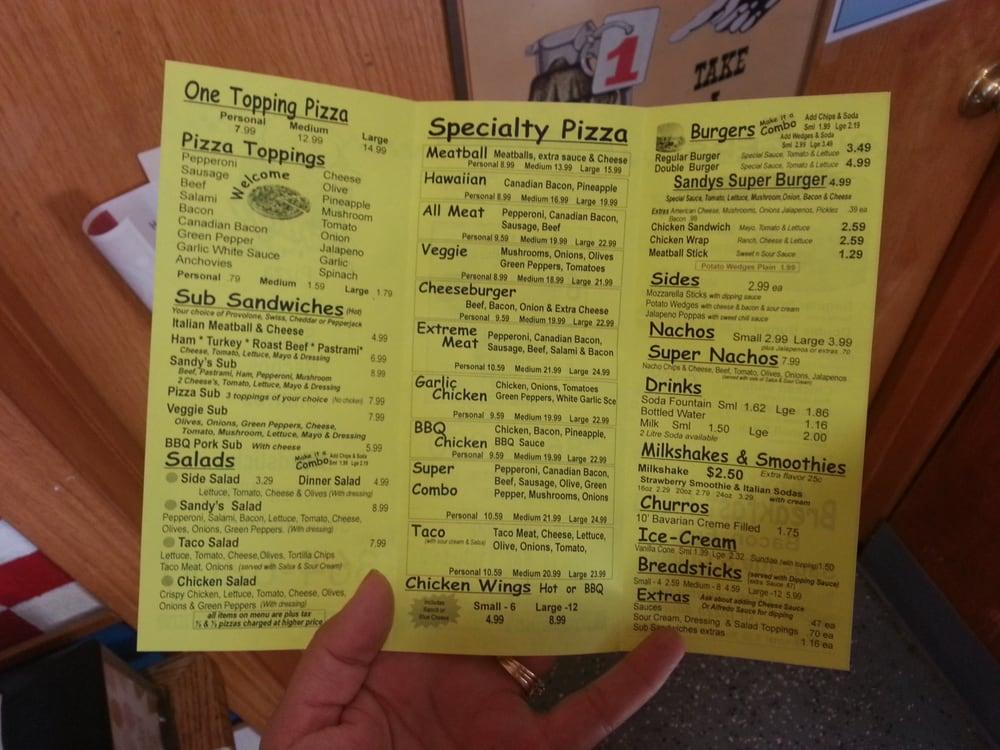 1
TAKE
One Topping Pizza
Personal Medium Large
7.99 12.99 14.99
Pizza Toppings
Welcome
Pepperoni
Sausage
Beef
Salami
Bacon
Canadian Bacon
Green Pepper
Garlic White Sauce
Anchovies
Cheese
Olive
Pineapple
Mushroom
Tomato
Onion
Jalapeno
Garlic
Spinach
Personal .79 Medium 1.59 Large 1.79
Sub Sandwiches (Hot)
Your choice of Provolone, Swiss, Cheddar or Pepperjack
Italian Meatball & Cheese 4.99
Ham * Turkey * Roast Beef * Pastrami*
Cheese, Tomato, Lettuce, Mayo & Dressing 6.99
Sandy's Sub 8.99
Beef, Pastrami, Ham, Pepperoni, Mushroom
2 Cheese's, Tomato, Lettuce, Mayo & Dressing
Pizza Sub 3 toppings of your choice (No chicken) 7.99
Veggie Sub 7.99
Olives, Onions, Green Peppers, Cheese,
Tomato, Mushroom, Lettuce, Mayo & Dressing
BBQ Pork Sub With cheese 5.99
Salads
Make it a Combo Add Chips & Soda
Sml 1.99 Lge 2.19
Side Salad 3.29 Dinner Salad 4.99
Lettuce, Tomato, Cheese & Olives (With dressing)
Sandy's Salad 8.99
Pepperoni, Salami, Bacon, Lettuce, Tomato, Cheese,
Olives, Onions, Green Peppers. (With dressing)
Taco Salad 7.99
Lettuce, Tomato, Cheese,Olives, Tortilla Chips
Taco Meat, Onions (served with Salsa & Sour Cream)
Chicken Salad
Crispy Chicken, Lettuce, Tomato, Cheese, Olives,
Onions & Green Peppers (With dressing)
all items on menu are plus tax
½ & ½ pizzas charged at higher price
Specialty Pizza
Meatball Meatballs, extra sauce & Cheese
Personal 8.99 Medium 13.99 Large 15.99
Hawaiian Canadian Bacon, Pineapple
Personal 8.99 Medium 16.99 Large 19.99
All Meat Pepperoni, Canadian Bacon,
Sausage, Beef
Personal 9.59 Medium 19.99 Large 22.99
Veggie Mushrooms, Onions, Olives
Green Peppers, Tomatoes
Personal 8.99 Medium 18.99 Large 21.99
Cheeseburger
Beef, Bacon, Onion & Extra Cheese
Personal 9.59 Medium 19.99 Large 22.99
Extreme Pepperoni, Canadian Bacon,
Meat Sausage, Beef, Salami & Bacon
Personal 10.59 Medium 21.99 Large 24.99
Garlic Chicken, Onions, Tomatoes
Chicken Green Peppers, White Garlic Sce
Personal 9.59 Medium 19.99 Large 22.99
BBQ Chicken, Bacon, Pineapple,
Chicken BBQ Sauce
Personal 9.59 Medium 19.99 Large 22.99
Super Pepperoni, Canadian Bacon,
Beef, Sausage, Olive, Green
Combo Pepper, Mushrooms, Onions
Personal 10.59 Medium 21.99 Large 24.99
Taco Taco Meat, Cheese, Lettuce,
(with sour cream & Salsa) Olive, Onions, Tomato,
Personal 10.59 Medium 20.99 Large 23.99
Chicken Wings Hot or BBQ
Includes
Ranch or
Blue Cheese
Small - 6 Large -12
4.99 8.99
Burgers Make it a Combo
Add Chips & Soda
Sml 1.99 Lge 2.19
Add Wedges & Soda
Sml 2.99 Lge 3.49
Regular Burger Special Sauce, Tomato & Lettuce 3.49
Double Burger Special Sauce, Tomato & Lettuce 4.99
Sandys Super Burger 4.99
Special Sauce, Tomato, Lettuce, Mushroom,Onion, Bacon & Cheese
Extras American Cheese, Mushrooms, Onions Jalapenos, Pickles .39 ea
Bacon .98
Chicken Sandwich Mayo, Tomato & Lettuce 2.59
Chicken Wrap Ranch, Cheese & Lettuce 2.59
Meatball Stick Sweet n Sour Sauce 1.29
Potato Wedges Plain 1.99
Sides 2.99 ea
Mozzarella Sticks with dipping sauce
Potato Wedges with cheese & bacon & sour cream
Jalapeno Poppas with sweet chili sauce
Nachos Small 2.99 Large 3.99
plus Jalapenos or extras .70
Super Nachos 7.99
Nacho Chips & Cheese, Beef, Tomato, Olives, Onions, Jalapenos
(served with side of Salsa & Sour Cream)
Drinks
Soda Fountain Sml 1.62 Lge 1.86
Bottled Water 1.16
Milk Sml 1.50 Lge 2.00
2 Litre Soda available
Milkshakes & Smoothies
Milkshake $2.50 Extra flavor 25c
Strawberry Smoothie & Italian Sodas
16oz 2.29 20oz 2.79 24oz 3.29 with cream
Churros
10' Bavarian Creme Filled 1.75
Ice-Cream
Vanilla Cone Sml 1.39 Lge 2.32 Sundae (with topping)1.50
Breadsticks (served with Dipping Sauce)
(extra Sauce .47)
Small - 4 2.59 Medium - 8 4.59 Large -12 5.99
Extras Ask about adding Cheese Sauce
Or Alfredo Sauce for dipping
Sauces .47 ea
Sour Cream, Dressing & Salad Toppings .70 ea
Sub Sandwiches extras 1.16 ea